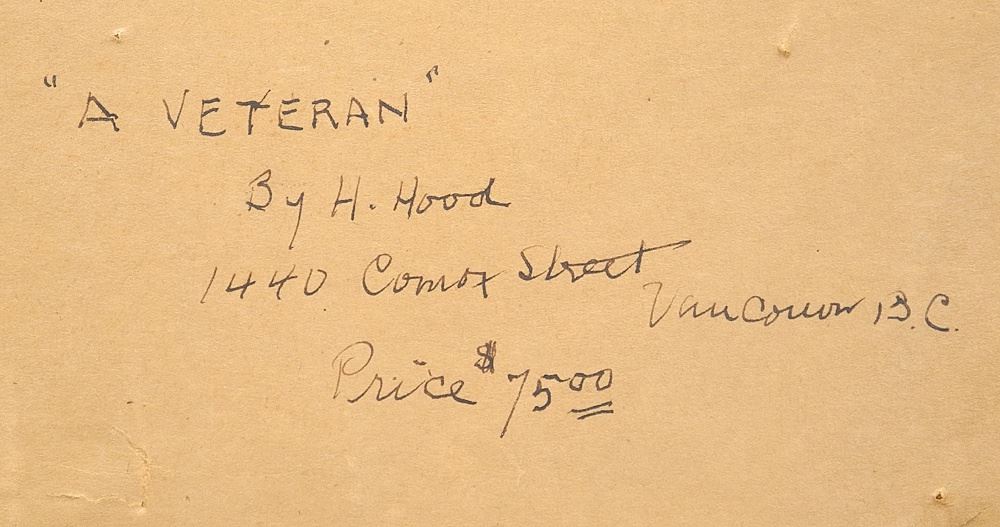 "A VETERAN"
By H. Hood
1440 Comox Street
Vancouver B.C.
Price $7500